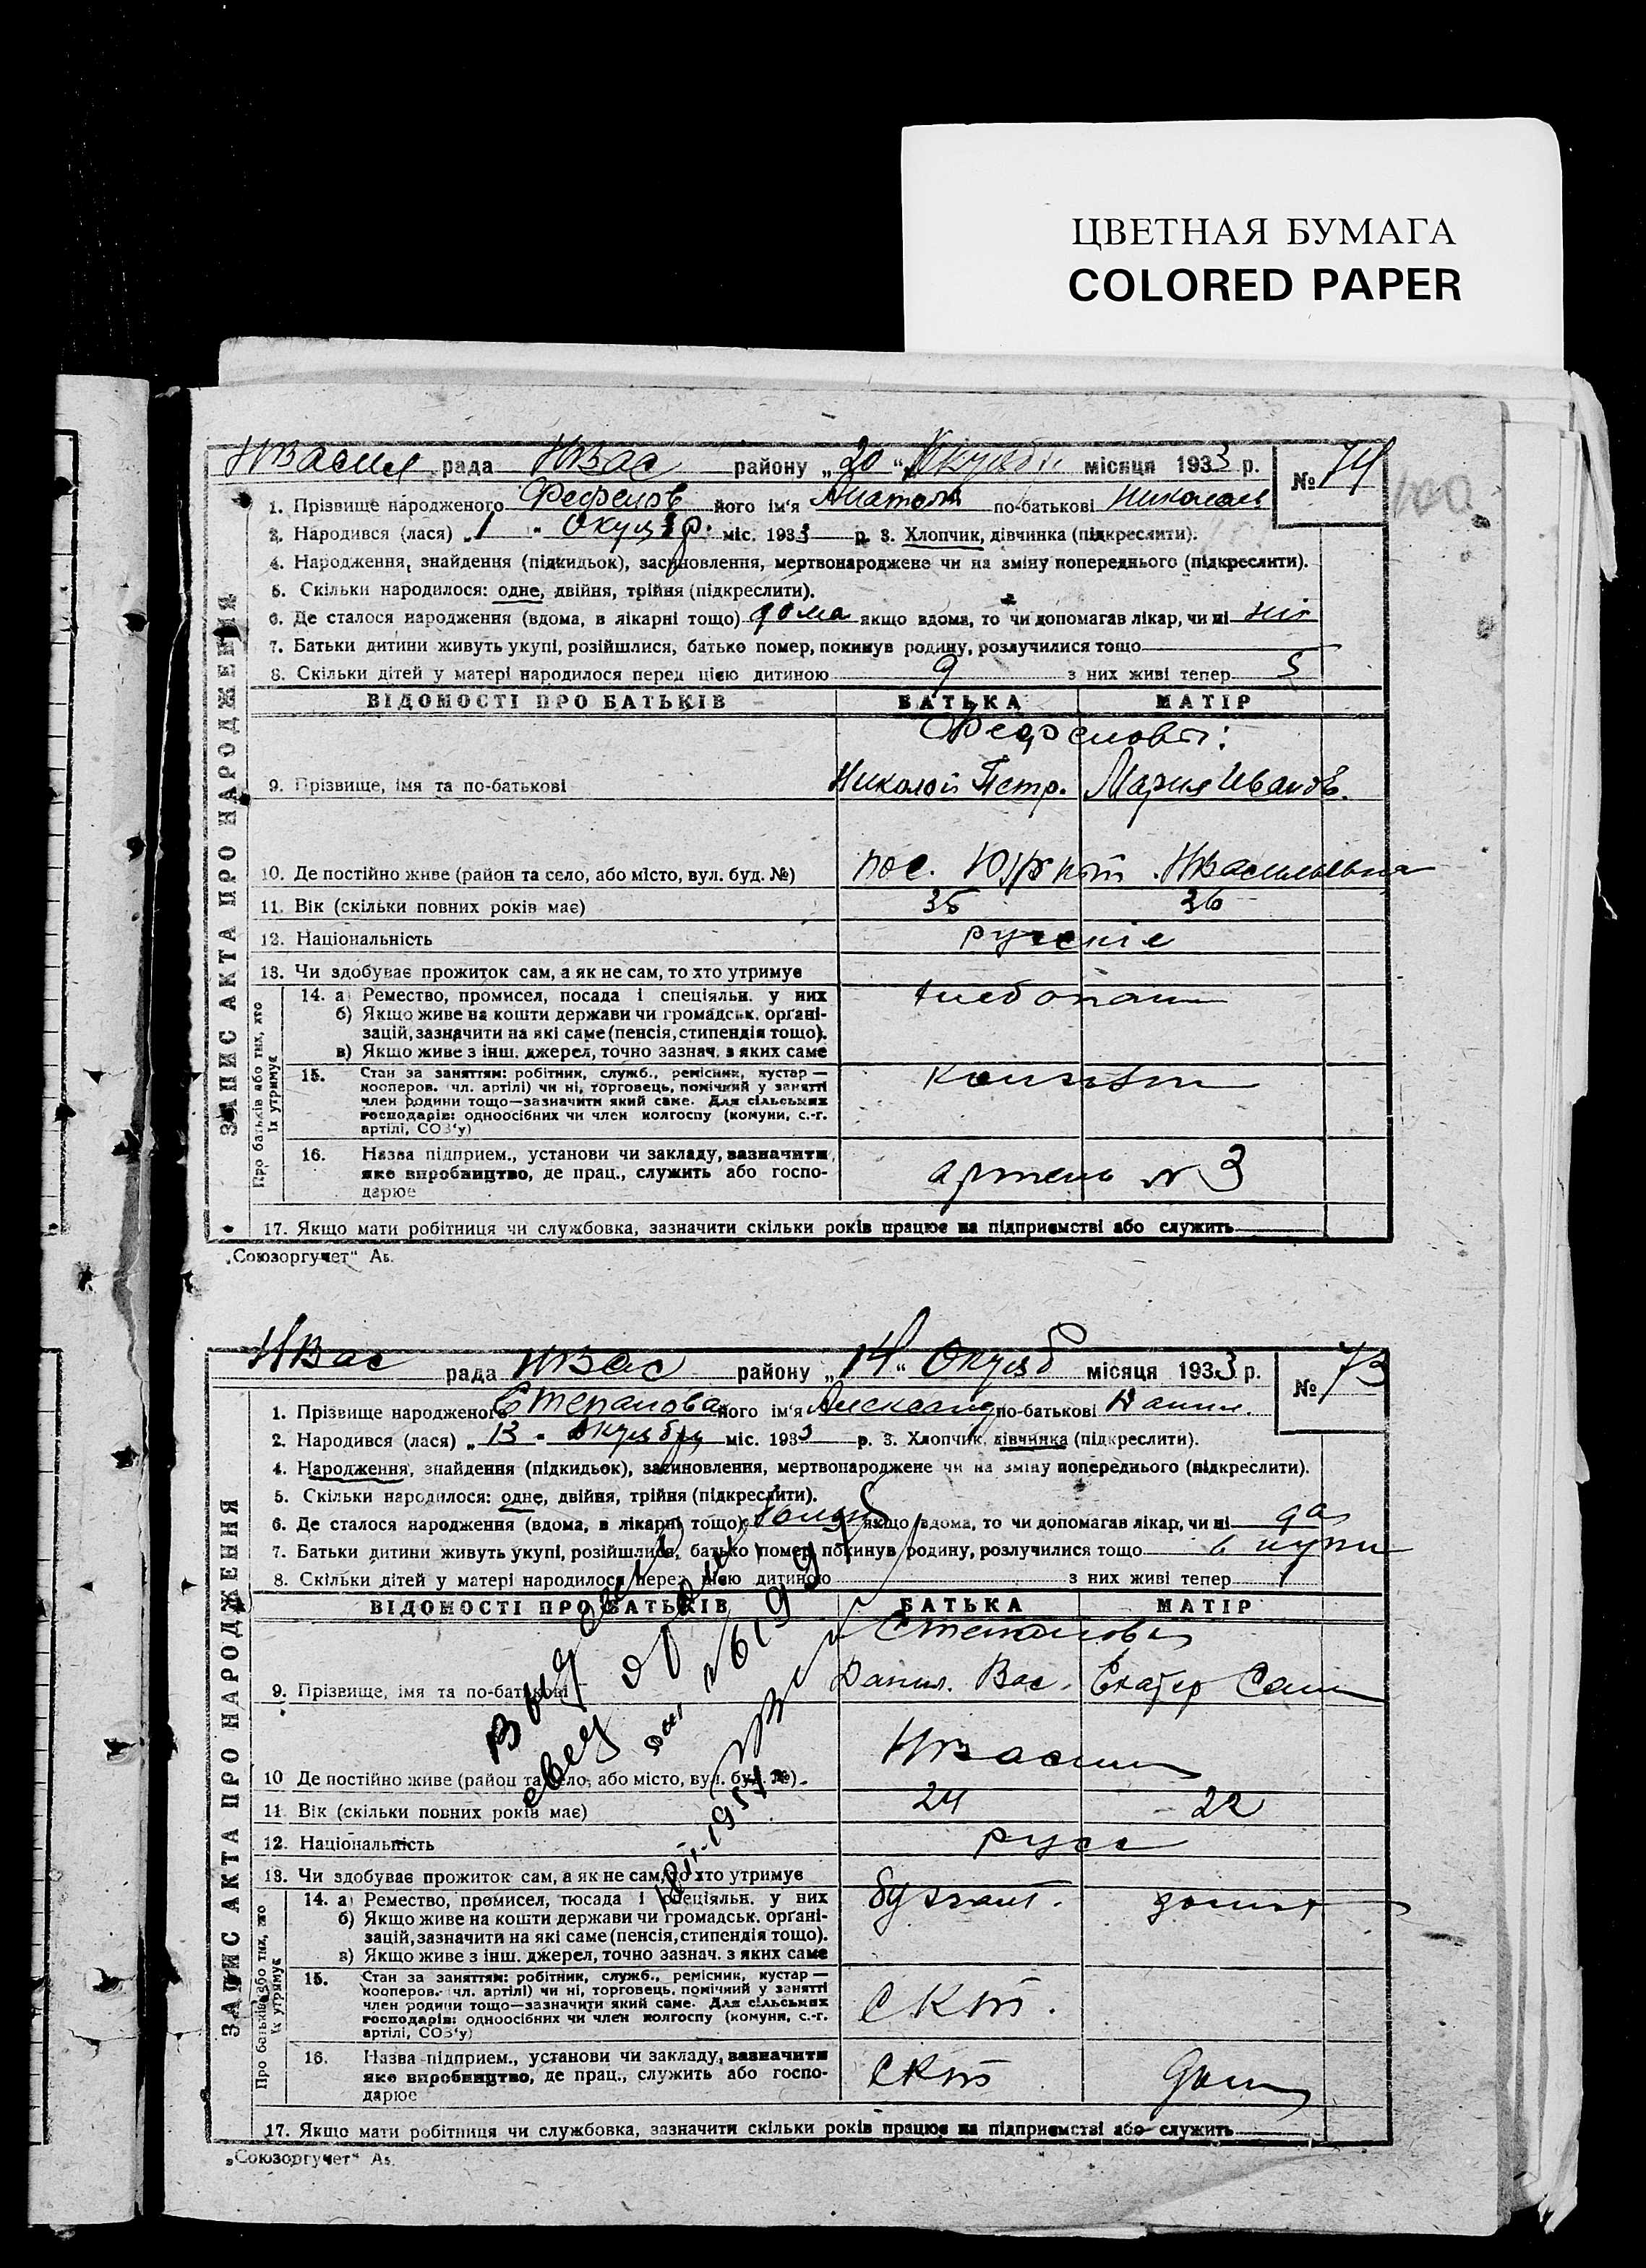 ЦВЕТНАЯ БУМАГА
COLORED PAPER
НВасил рада НВас району „20“ Октяб місяця 1933 р. № 74
100
ЗАПИС АКТА ПРО НАРОДЖЕННЯ
1. Прізвище народженого Фефелов його ім'я Анатол по-батькові Николаев
2. Народився (лася) „1“ Октяб міс. 1933 р. 3. Хлопчик, дівчинка (підкреслити).
4. Народження, знайдення (підкидьок), засиновлення, мертвонароджене чи на зміну попереднього (підкреслити).
5. Скільки народилося: одне, двійня, трійня (підкреслити).
6. Де сталося народження (вдома, в лікарні тощо) дома якщо вдома, то чи допомагав лікар, чи ні ні
7. Батьки дитини живуть укупі, розійшлися, батько помер, покинув родину, розлучилися тощо
8. Скільки дітей у матері народилося перед цією дитиною 9 з них живі тепер 5
ВІДОМОСТІ ПРО БАТЬКІВ БАТЬКА МАТІР
Фефеловы:
9. Прізвище, імя та по-батькові Николай Петр. Мария Иванов.
10. Де постійно живе (район та село, або місто, вул. буд. №) пос. НВасильевка
11. Вік (скільки повних років має) 36 36
12. Національність руские
13. Чи здобуває прожиток сам, а як не сам, то хто утримує
Про батьків або тих, хто їх утримує
14. а) Ремество, промисел, посада і спеціяльн. у них хлебопаш
б) Якщо живе на кошти держави чи громадськ. органі-
зацій, зазначити на які саме (пенсія, стипендія тощо).
в) Якщо живе з інш. джерел, точно зазнач. з яких саме
15. Стан за заняттям: робітник, служб., ремісник, кустар —
кооперов. чл. артілі) чи ні, торговець, помічний у занятті
член родини тощо—зазначити який саме. Для сільських
господарів: одноосібних чи член колгоспу (комуни, с.-г.
артілі, СОЗ'у)
16. Назва підприєм., установи чи закладу, зазначити
яке виробництво, де прац., служить або госпо-
дарює артель № 3
17. Якщо мати робітниця чи службовка, зазначити скільки років працює на підприємстві або служить
„Союзоргучет“ А5.
НВас рада НВас району „14“ Октяб місяця 1933 р. № 73
ЗАПИС АКТА ПРО НАРОДЖЕННЯ
1. Прізвище народженого Степанова його ім'я Александ по-батькові Данил.
2. Народився (лася) „13“ Октября міс. 1933 р. 3. Хлопчик, дівчинка (підкреслити).
4. Народження, знайдення (підкидьок), засиновлення, мертвонароджене чи на зміну попереднього (підкреслити).
5. Скільки народилося: одне, двійня, трійня (підкреслити).
6. Де сталося народження (вдома, в лікарні тощо) якщо вдома, то чи допомагав лікар, чи ні да
7. Батьки дитини живуть укупі, розійшлися, батько помер, покинув родину, розлучилися тощо в купи
8. Скільки дітей у матері народилося перед цією дитиною з них живі тепер 1
ВІДОМОСТІ ПРО БАТЬКІВ БАТЬКА МАТІР
Степановы
9. Прізвище, імя та по-батькові Данил. Вас. Екатер
10 Де постійно живе (район та село, або місто, вул. буд. №) НВасил
11 Вік (скільки повних років має) 24 22
12. Національність русс
13. Чи здобуває прожиток сам, а як не сам, то хто утримує
Про батьків або тих, хто їх утримує
14. а) Ремество, промисел, посада і спеціяльн. у них бухгалт. домаш
б) Якщо живе на кошти держави чи громадськ. органі-
зацій, зазначити на які саме (пенсія, стипендія тощо).
в) Якщо живе з інш. джерел, точно зазнач. з яких саме
15. Стан за заняттям: робітник, служб., ремісник, кустар —
кооперов. чл. артілі) чи ні, торговець, помічний у занятті
член родини тощо—зазначити який саме. Для сільських
господарів: одноосібних чи член колгоспу (комуни, с.-г.
артілі, СОЗ'у) СКТ.
16. Назва підприєм., установи чи закладу, зазначити
яке виробництво, де прац., служить або госпо-
дарює СКТ дом
17. Якщо мати робітниця чи службовка, зазначити скільки років працює на підприємстві або служить
„Союзоргучет“ А5.